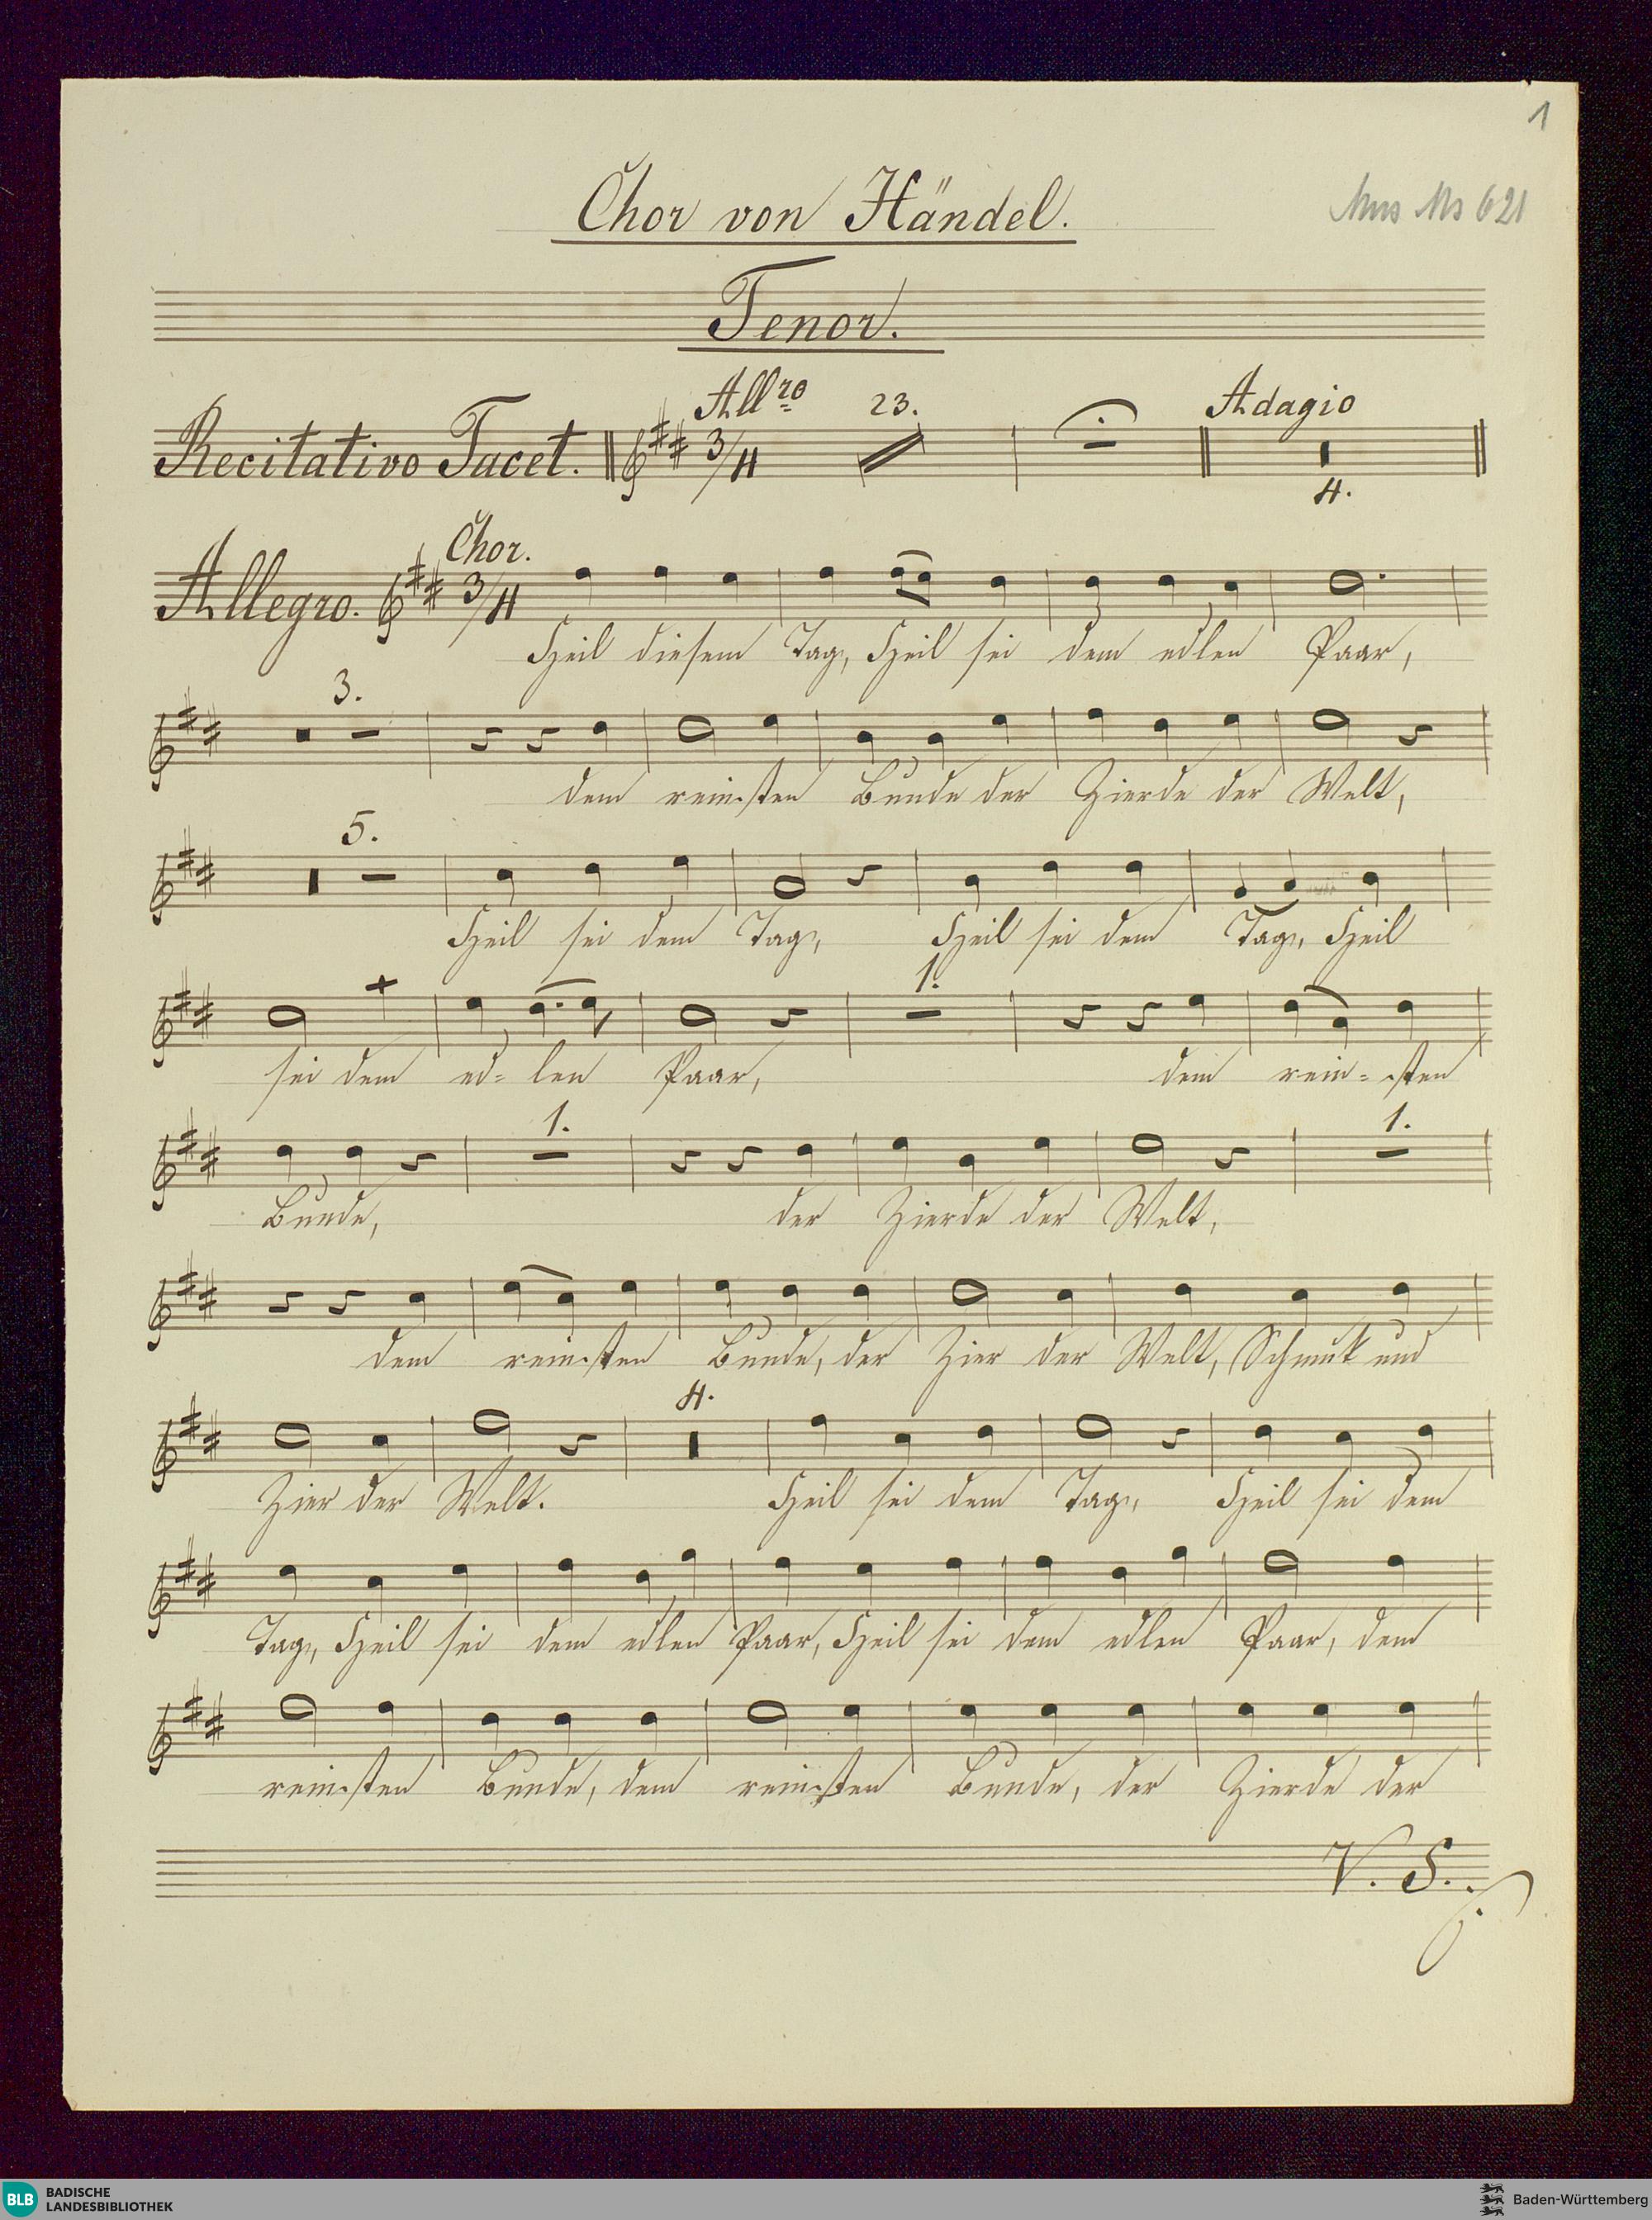 1
Mus Ms 621
Chor von Händel.
Tenor.
Allro 23. Adagio
Recitativo Tacet. 3/4 4.
Chor.
Allegro. 3/4
Heil diesem Tag, Heil sei dem edlen Paar,
3.
dem reinsten Bunde der Zierde der Welt,
5.
Heil sei dem Tag, Heil sei dem Tag, Heil
1.
sei dem ed= len Paar, dem rein= sten
1. 1.
Bunde, der Zierde der Welt,
dem reinsten Bunde, der Zier der Welt, Schmuk und
4.
Zier der Welt. Heil sei dem Tag, Heil sei dem
Tag, Heil sei dem edlen Paar, Heil sei dem edlen Paar, dem
reinsten Bunde, dem reinsten Bunde, der Zierde der
V. S.
BLB BADISCHE
LANDESBIBLIOTHEK
Baden-Württemberg